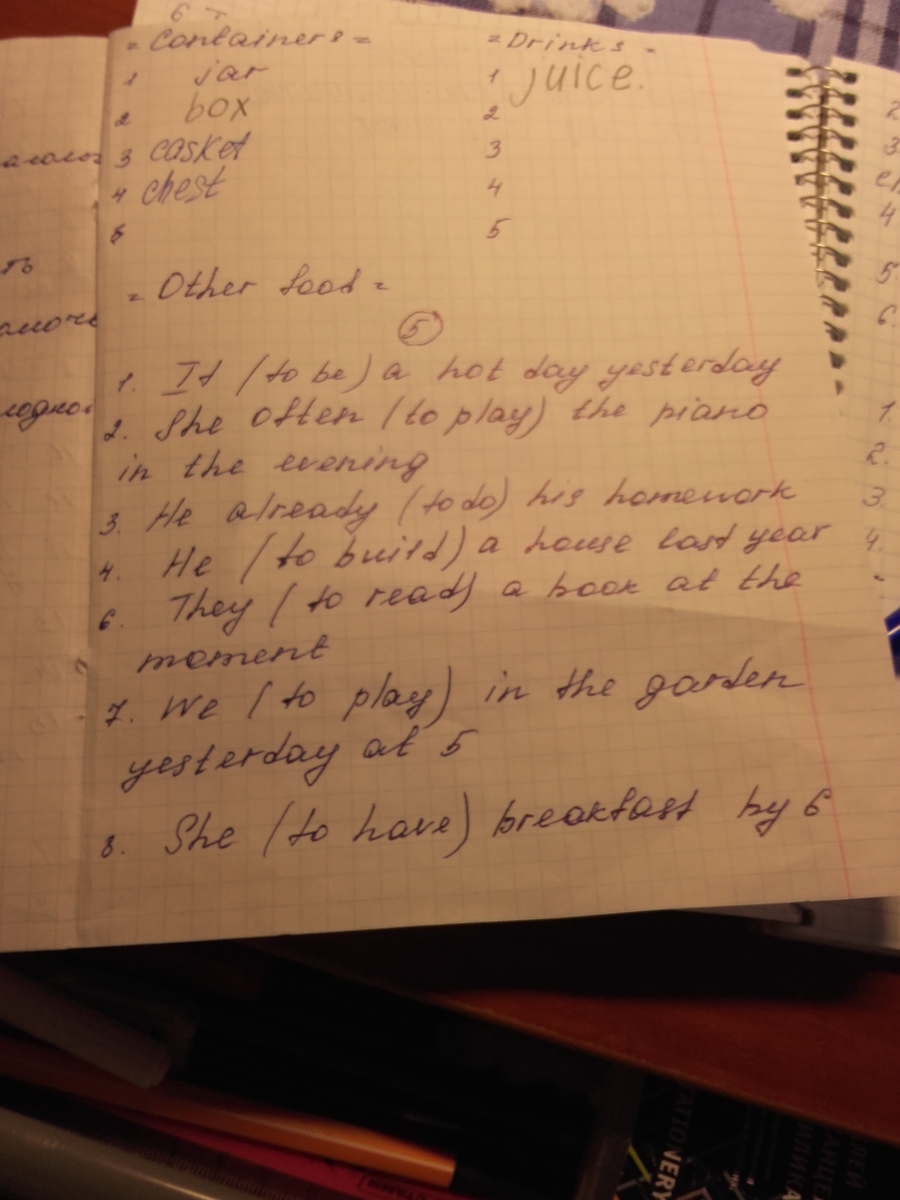 6
= Containers =
= Drinks =
1 jar
1 juice.
2 box
2
3 casket
3
4 chest
4
5
5
= Other food =
5
1. It (to be) a hot day yesterday
2. She often (to play) the piano
in the evening
3. He already (to do) his homework
4. He (to build) a house last year
6. They (to read) a book at the
moment
7. We (to play) in the garden
yesterday at 5
8. She (to have) breakfast by 6
2
3.
4
5
6.
1.
2.
3.
4.